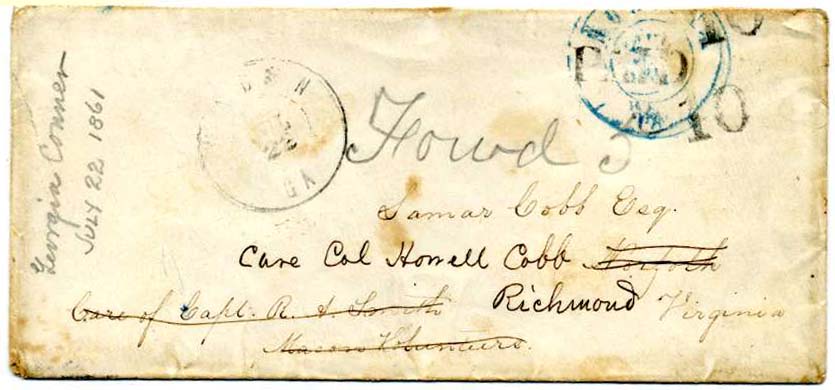 Georgia Conner
JULY 22 1861
PAID 10
10
22
Forwd 5
Lamar Cobb Esq.
Care Col Howell Cobb Norfolk
Care of Capt. R. A. Smith Richmond Virginia
Macon Volunteers.